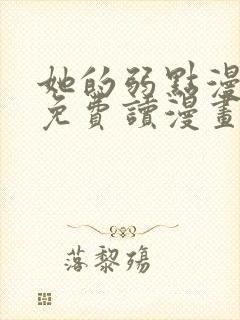 她的弱點漫
免費讀漫畫
落黎殤